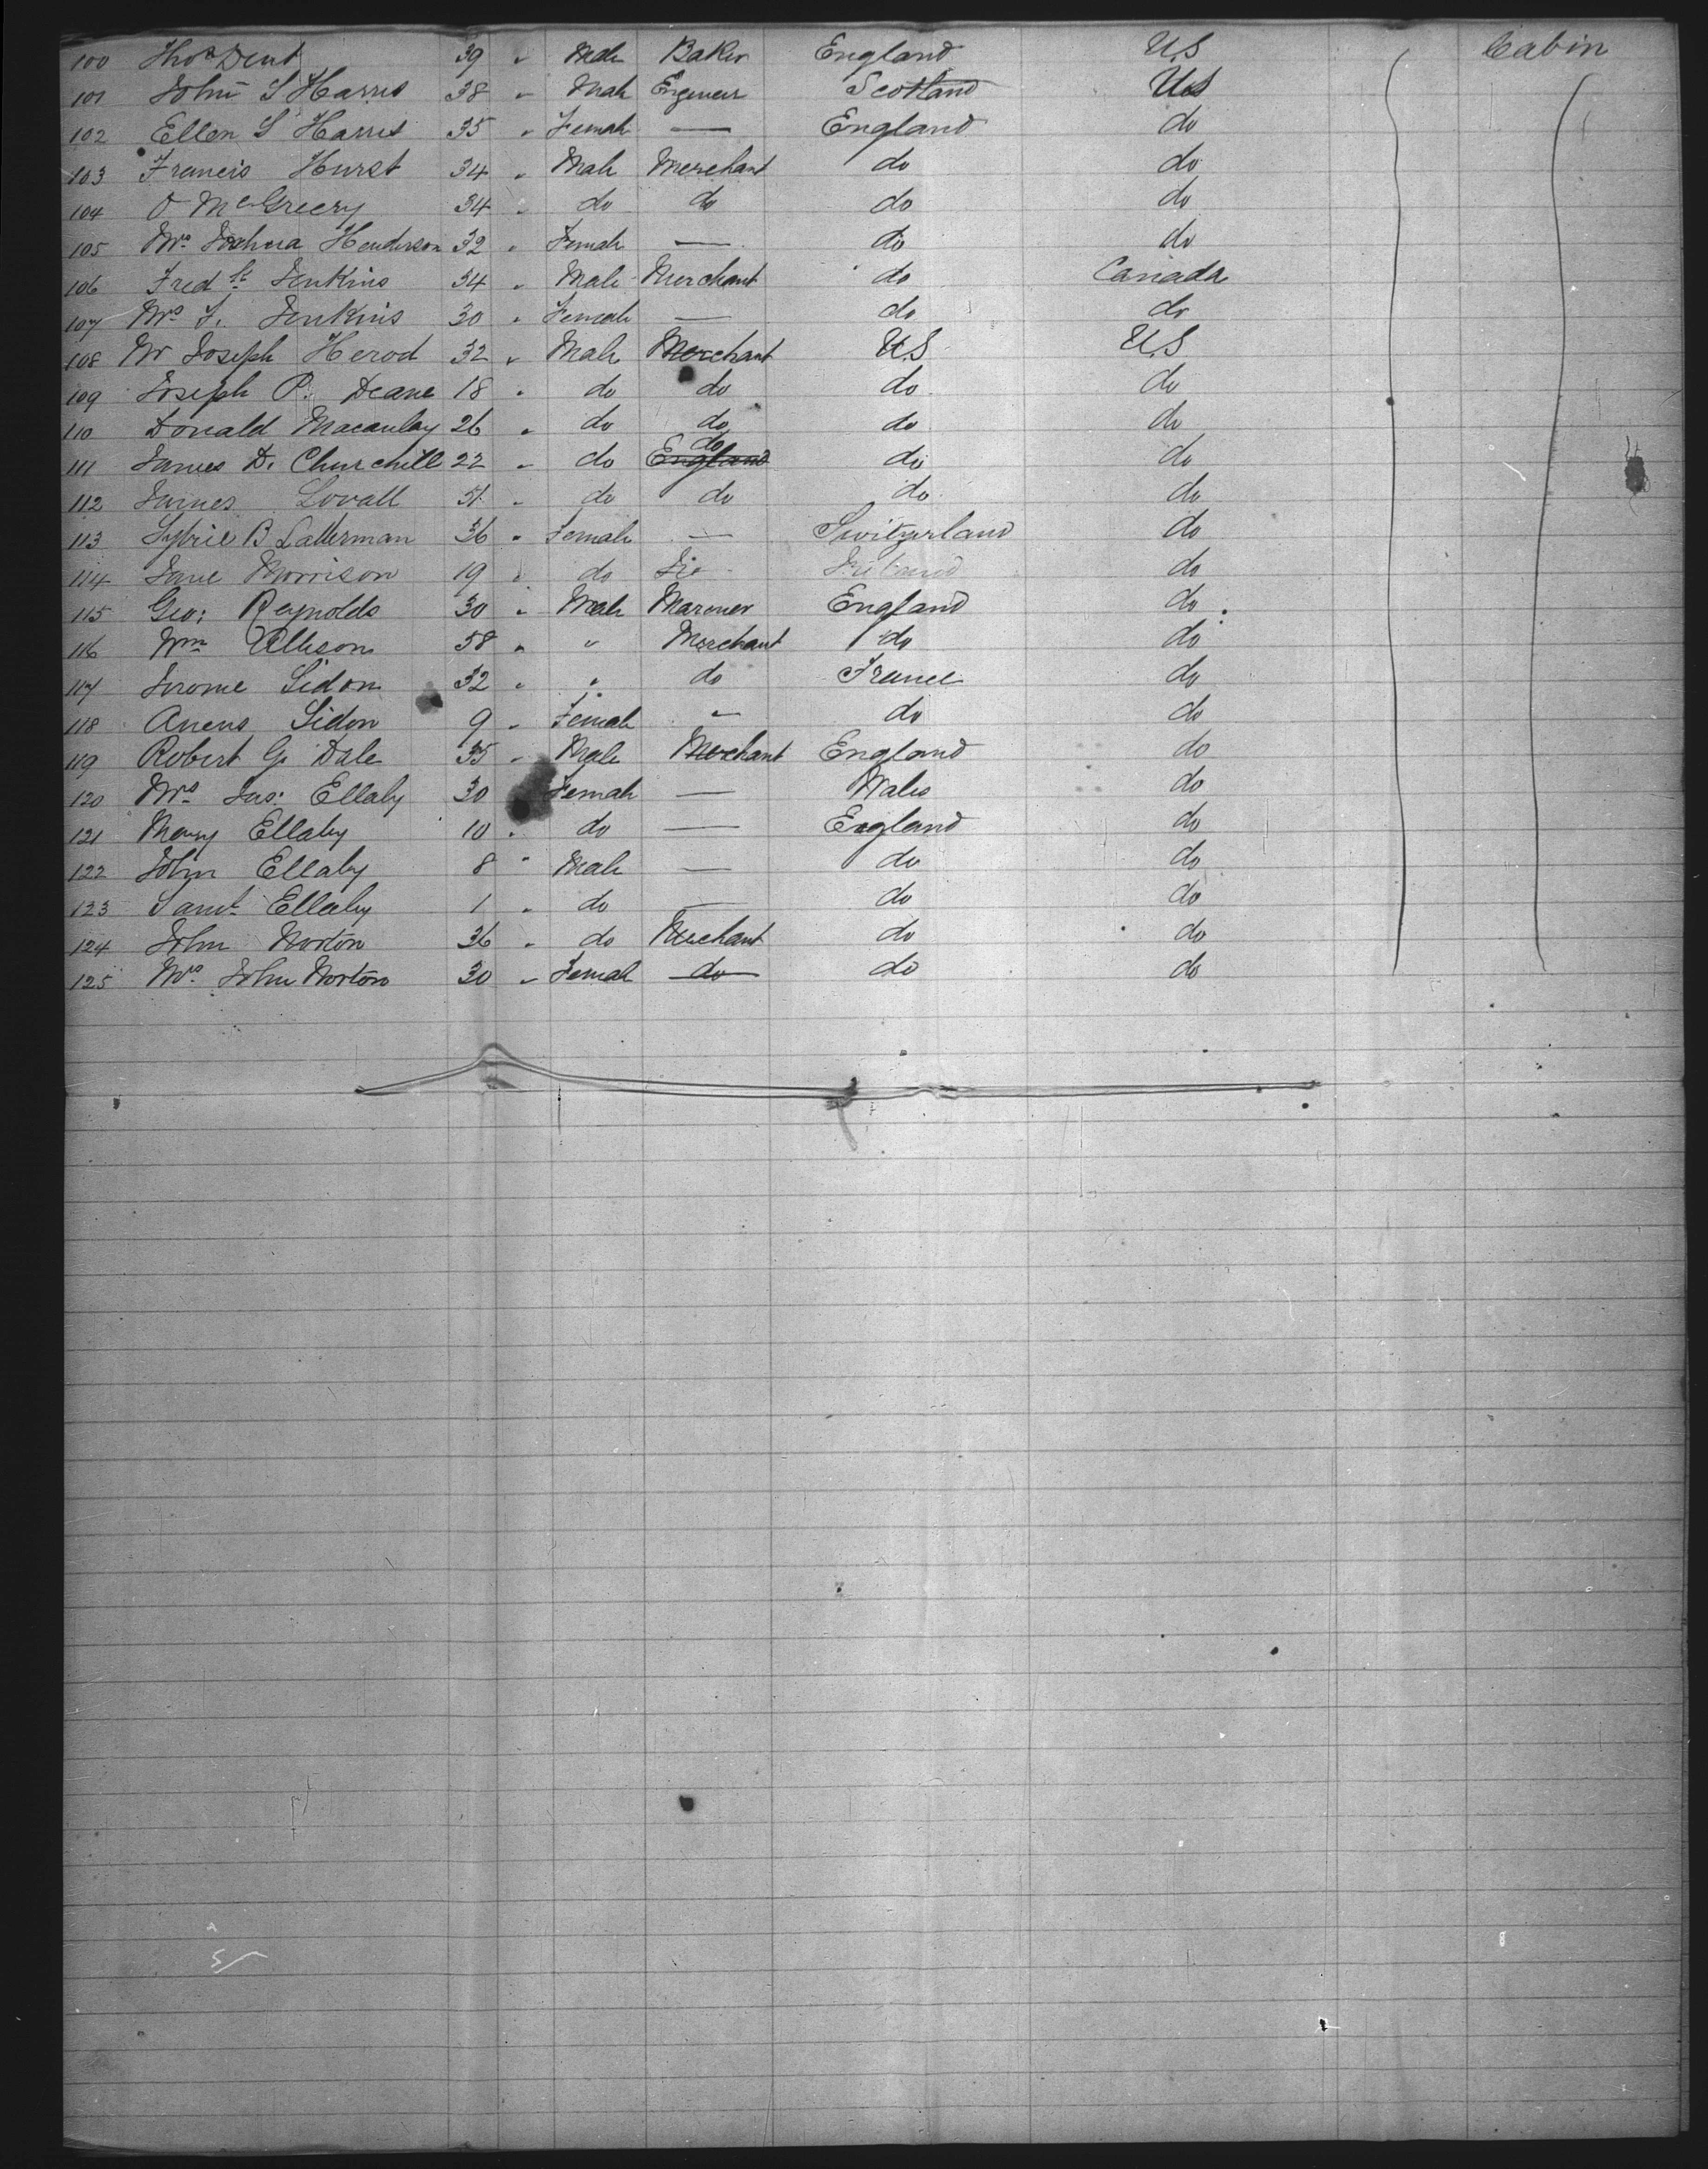 100 Thos Dent 39 " Male Baker England U.S Cabin
101 John S Harris 38 " Male Engineer Scotland U.S
102 Ellen S Harris 35 " Female — England do
103 Francis Hurst 34 " Male Merchant do do
104 O McGreery 34 " do do do do
105 Mrs Joshua Henderson 32 " Female — do do
106 Fredk Jenkins 34 " Male Merchant do Canada
107 Mrs F. Jenkins 30 " Female — do do
108 Mr Joseph Herod 32 " Male Merchant U.S U.S
109 Joseph P. Deane 18 " do do do do
110 Donald Macaulay 26 " do do do do
111 James D. Churchill 22 " do England do do do
112 James Lovall 51 " do do do do
113 B Latterman 36 " Female — Switzerland do
114 Jane Morrison 19 " do Ireland do
115 Geo: Reynolds 30 " Male Mariner England do
116 Wm Allison 58 " " Merchant do do
117 Jerome Sidon 32 " " do France do
118 Sidon 9 " Female " do do
119 Robert G. Dale 35 " Male Merchant England do
120 Mrs Jas: Ellaby 30 Female — Wales do
121 Mary Ellaby 10 " do — England do
122 John Ellaby 8 " Male — do do
123 Saml Ellaby 1 " do — do do
124 John Norton 36 " do Merchant do do
125 Mrs John Norton 30 " Female do do do